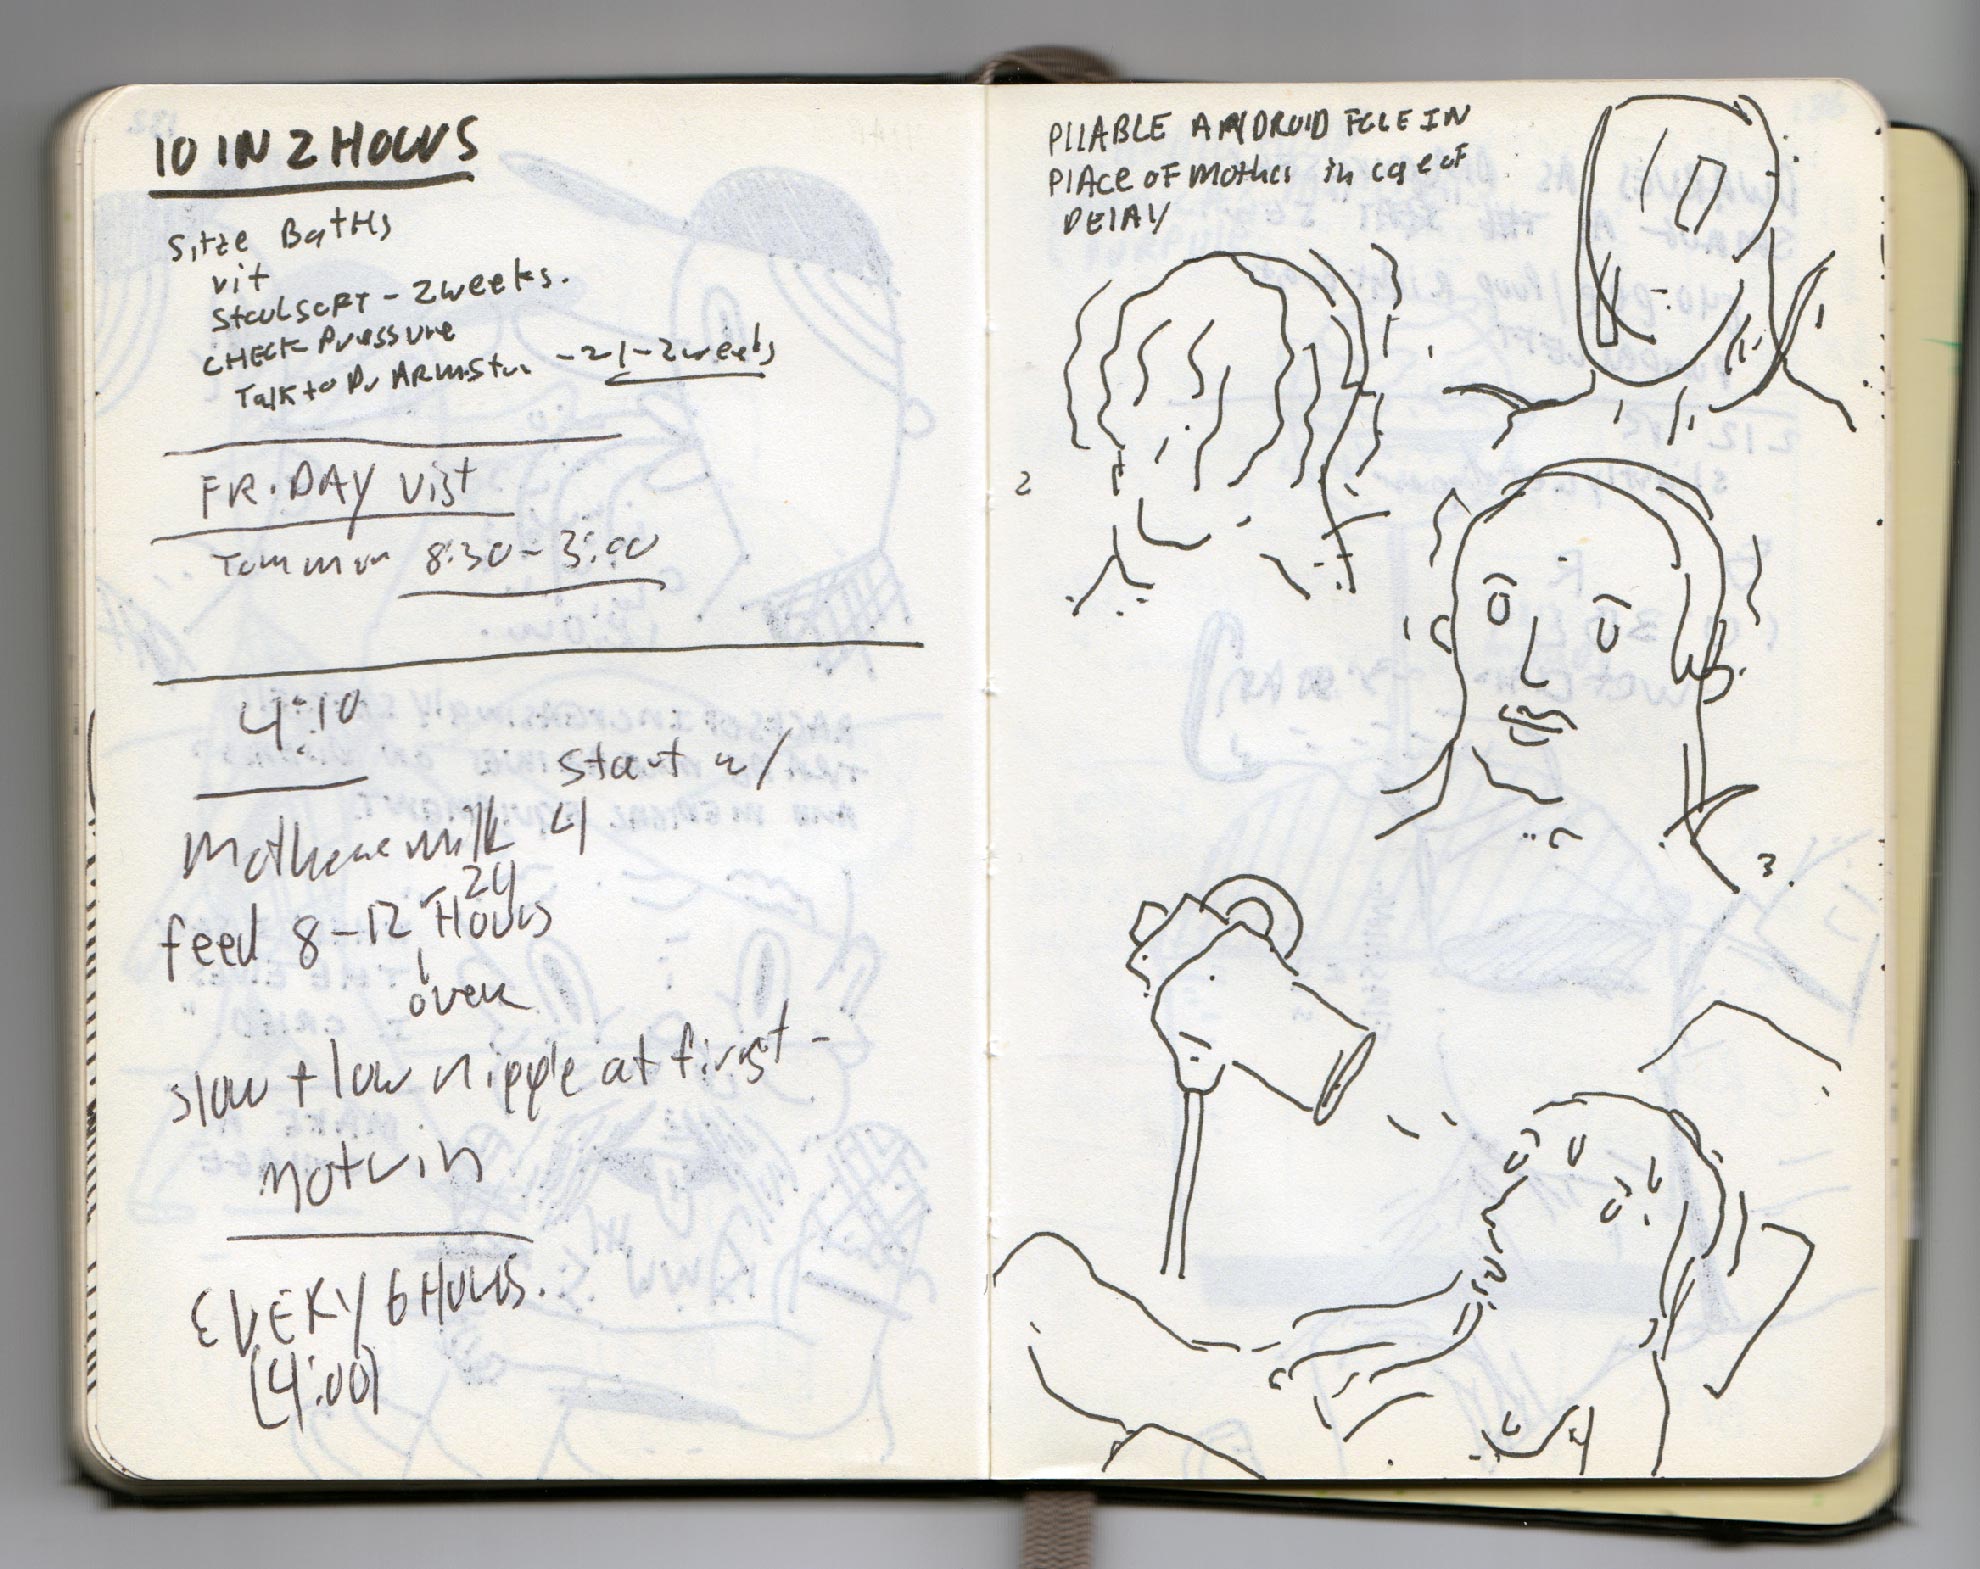 10 IN 2 HOURS
Sitze BatHs
vit
StoolSOFT - 2 weeks.
CHECK Pressure
Talk to Dr ARMSTRN - 1-2 weeks
FRiDAY Visit
8:30 - 3:00
4:10
start w/
milk 4
feed 8-12 24 Hours
over
slow + low nipple at first -
Motrin
EVERY 6 HOURS.
(4:00)
PlIABLE ANDROID FACE IN
PlAce OF Mother in case of
DElAY
2
3.